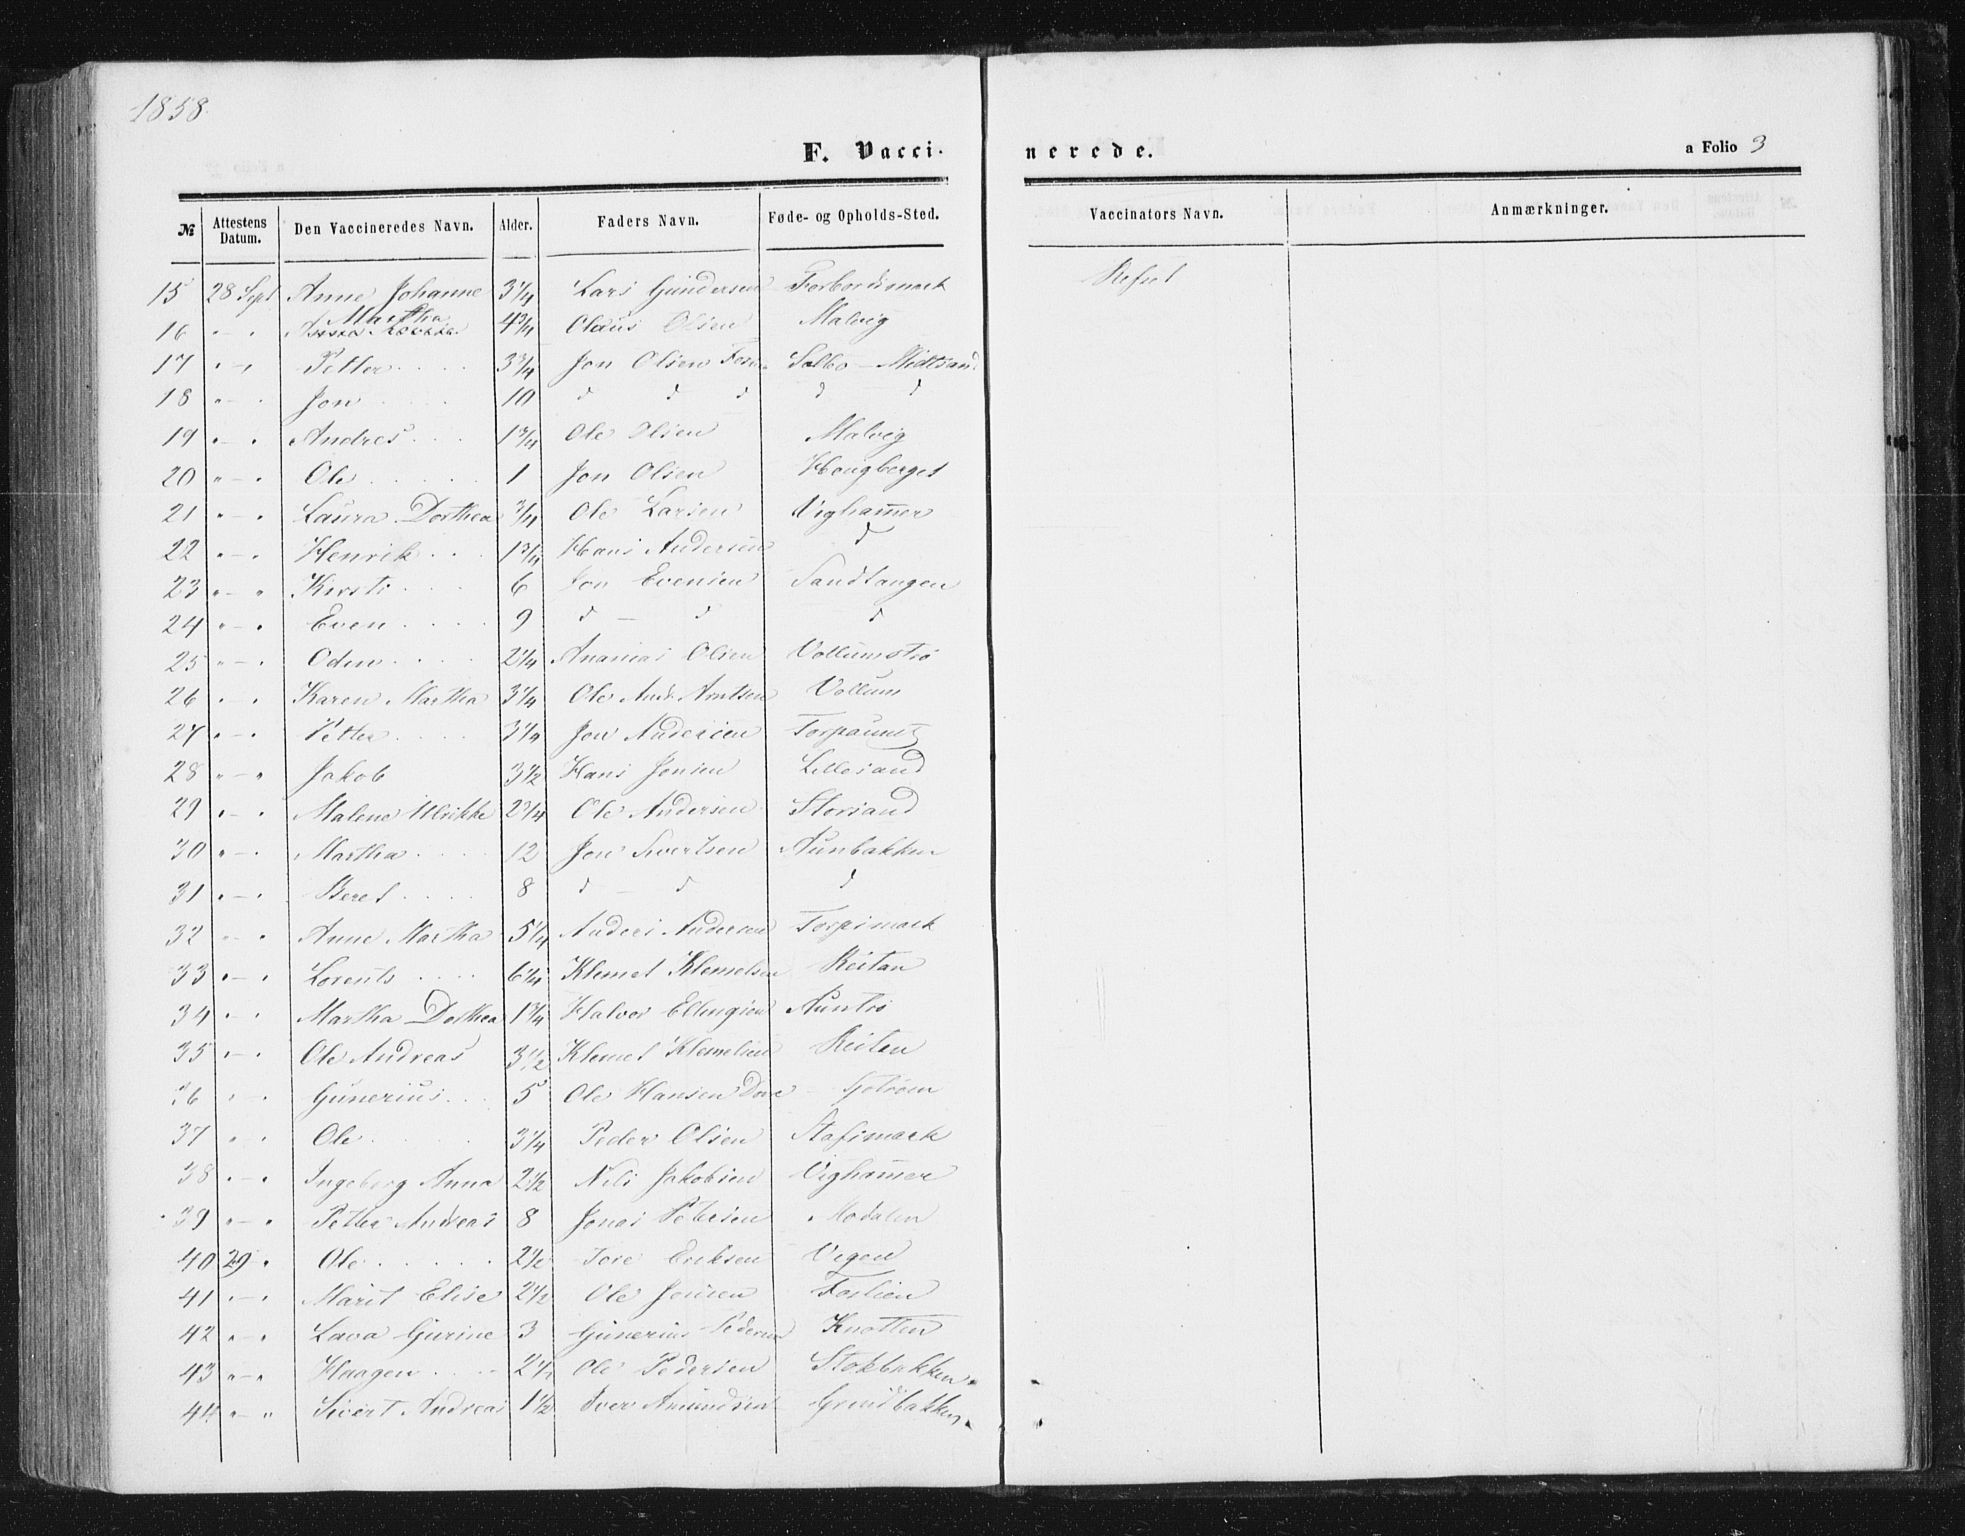 1858.
F. Vacci- nerede. a Folio 3
№ Attestens Datum. Den Vaccineredes Navn. Alder. Faders Navn. Føde- og Opholds-Sted. Vaccinators Navn. Anmærkninger.
15 28 Sept Anne Johanne 3 1/4 Lars Gundersen Forbordsmark
16 " - " Martha 4 3/4 Olaus Olsen Malvig
17 " - " Petter 3 3/4 Jon Olsen Selbo - Midtsand
18 " - " Jon 10 d d d d d
19 " - " Andres 1 3/4 Ole Olsen Malvig
20 " - " Ole 1 Jon Olsen Hougberget
21 " - " Laura Dorthea 3/4 Ole Larsen Vighamer
22 " - " Henrik 1 3/4 Hans Andersen d
23 " - " Kirsti 6 Jon Evensen Sandtangen
24 " - " Even 9 d - d d
25 " - " Oden 2 1/4 Ananias Olsen Vollumstrø
26 " - " Karen Martha 3 1/4 Ole And. Arntsen Vollum
27 " - " Petter 3 1/4 Jon Andersen
28 " - " Jakob 3 1/2 Hans Jonsen Lillesand
29 " - " Malene Ulrikke 2 1/4 Ole Andersen Storsand
30 " - " Martha 12 Jon Sivertsen Aunbakken
31 " - " Beret 8 d - d d
32 " - " Anne Martha 5 1/4 Anders Andersen Torpsmark
33 " - " Lorents 6 1/4 Klemet Klemetsen Reitan
34 " - " Martha Dorthea 1 3/4 Halvor Ellingsen Auntrø
35 " - " Ole Andreas 3 1/2 Klemet Klemetsen Reitan
36 " - " Gunerius 5 Ole Hansen
37 " - " Ole 3 1/4 Peder Olsen
38 " - " Ingeborg Anna 2 1/2 Nils Jakobsen Vighamer
39 " - " Petter Andreas 8 Jonas Petersen Modalen
40 29 " Ole 2 1/2 Tore Eriksen Vegen
41 " - " Marit Elise 2 1/2 Ole Jonsen
42 " - " Lava Gurine 3 Gunerius Pedersen Knotten
43 " - " Haagen 2 1/2 Ole Pedersen Stokbakken
44 " - " Sivert Andreas 1 1/2 Iver Amundsen Grindbakken